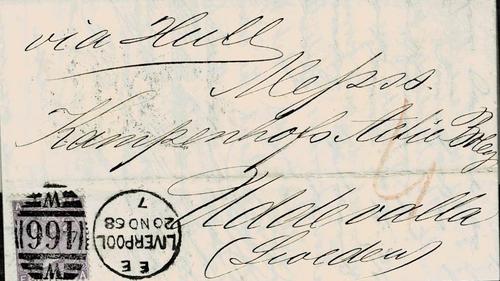 via Hull
Messrs.
Kampenhofs Actie Bolag
Uddevalla
(Sweden)
466
W
E E
LIVERPOOL
20 NO 68
7